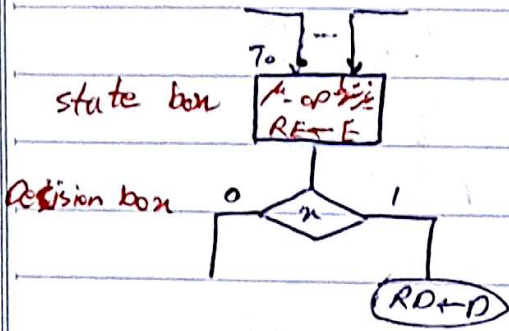 ...
T0
state box
μ-op
RE ← E
Decision box
0
x
1
RD ← D